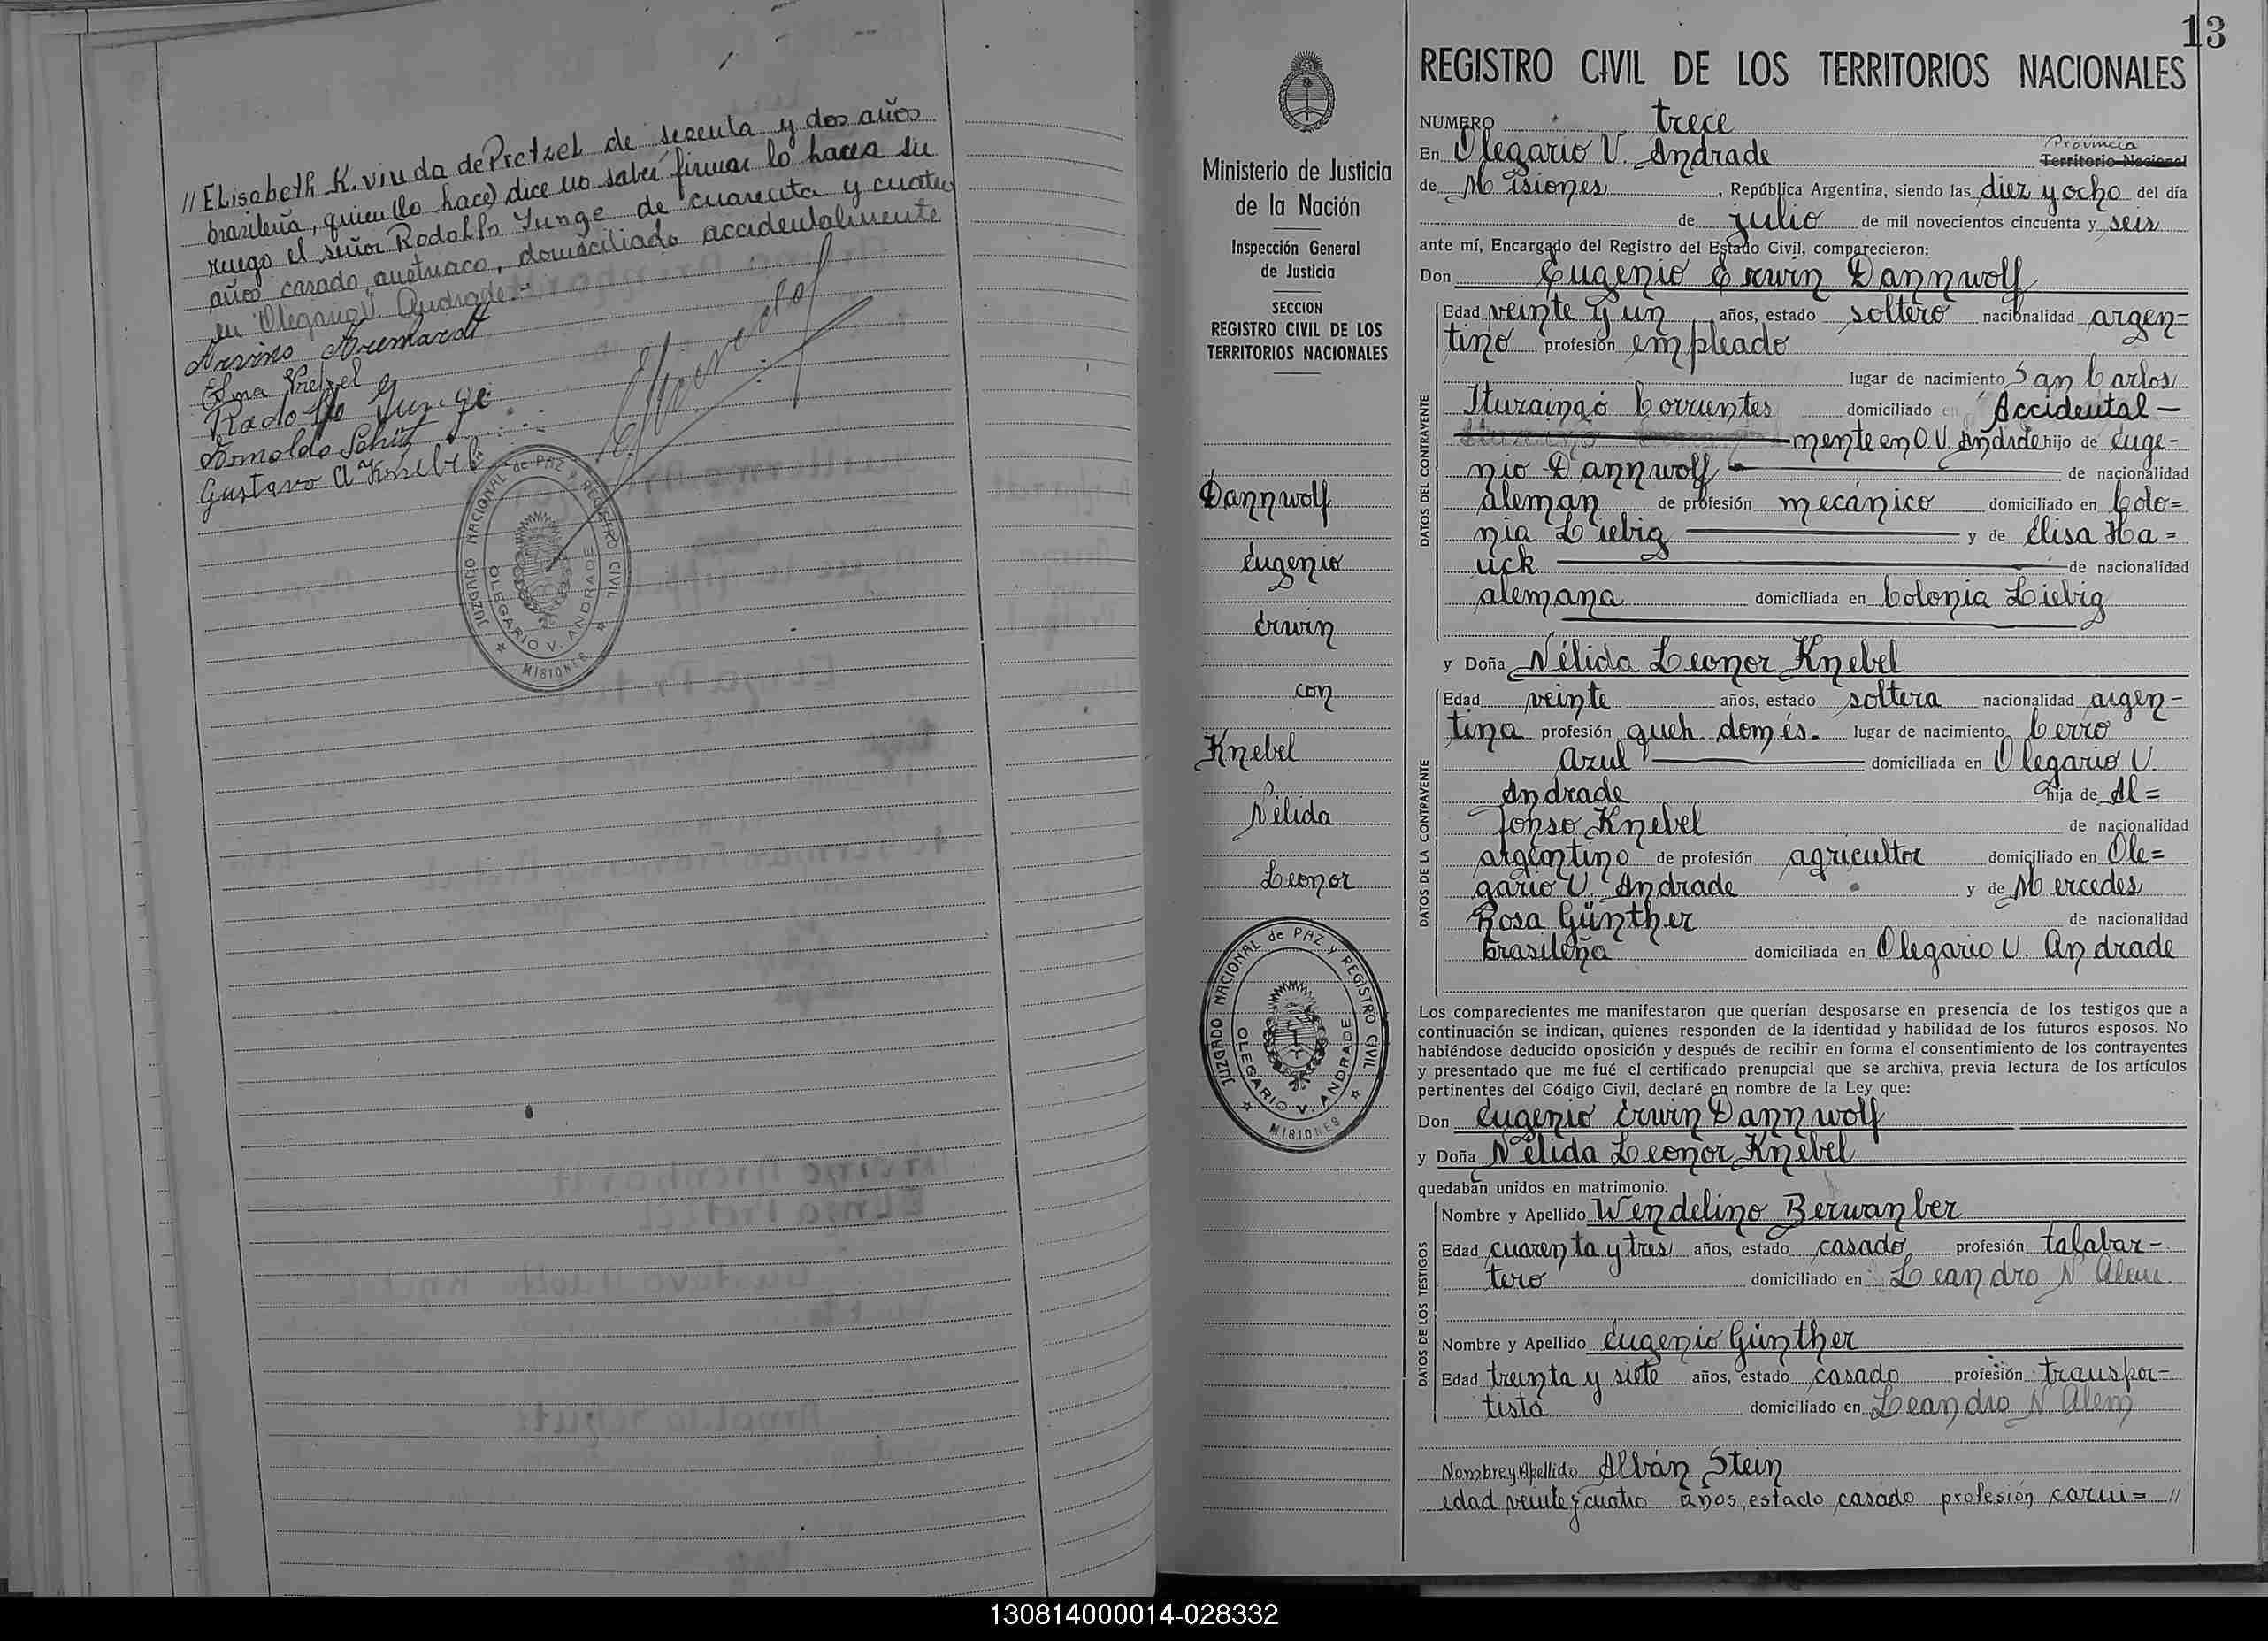 // Elisabeth K. viuda de Pretzel de sesenta y dos años
brasileña, quien (lo hace) dice no saber firmar lo hace a su
ruego el señor Rodolfo Junge de cuarenta y cuatro
años casado, austriaco, domiciliado accidentalmente
en Olegario V. Andrade.-
Arvino
Elma Pretzel
Rodolfo Junge
Arnoldo Schütz
Gustavo A Knebel
JUZGADO NACIONAL de PAZ Y REGISTRO CIVIL
OLEGARIO V. ANDRADE
MISIONES
13
Ministerio de Justicia
de la Nación
Inspección General
de Justicia
SECCION
REGISTRO CIVIL DE LOS
TERRITORIOS NACIONALES
Dannwolf
Eugenio
Erwin
con
Knebel
Nélida
Leonor
JUZGADO NACIONAL de PAZ Y REGISTRO CIVIL
OLEGARIO V. ANDRADE
MISIONES
REGISTRO CIVIL DE LOS TERRITORIOS NACIONALES
NUMERO trece
Provincia
En Olegario V. Andrade Territorio Nacional
de Misiones, República Argentina, siendo las diez y ocho del día
de julio de mil novecientos cincuenta y seis
ante mí, Encargado del Registro del Estado Civil, comparecieron:
Don Eugenio Erwin Dannwolf
DATOS DEL CONTRAYENTE
Edad veinte y un años, estado soltero nacionalidad argen-
tino profesión empleado
lugar de nacimiento San Carlos
Ituzaingó Corrientes domiciliado en Accidental-
mente en O. V. Andrade hijo de Euge-
nio Dannwolf de nacionalidad
aleman de profesión mecánico domiciliado en Colo=
nia Liebig y de Elisa Ha=
uck de nacionalidad
alemana domiciliada en Colonia Liebig
y Doña Nélida Leonor Knebel
DATOS DE LA CONTRAYENTE
Edad veinte años, estado soltera nacionalidad argen-
tina profesión queh. domés. lugar de nacimiento Cerro
Azul domiciliada en Olegario V.
Andrade hija de Al=
fonso Knebel de nacionalidad
argentino de profesión agricultor domiciliado en Ole=
gario V. Andrade y de Mercedes
Rosa Günther de nacionalidad
brasileña domiciliada en Olegario V. Andrade
Los comparecientes me manifestaron que querían desposarse en presencia de los testigos que a
continuación se indican, quienes responden de la identidad y habilidad de los futuros esposos. No
habiéndose deducido oposición y después de recibir en forma el consentimiento de los contrayentes
y presentado que me fué el certificado prenupcial que se archiva, previa lectura de los artículos
pertinentes del Código Civil, declaré en nombre de la Ley que:
Don Eugenio Erwin Dannwolf
y Doña Nélida Leonor Knebel
quedaban unidos en matrimonio.
DATOS DE LOS TESTIGOS
Nombre y Apellido Wendelino Berwanber
Edad cuarenta y tres años, estado casado profesión talabar-
tero domiciliado en Leandro N. Alem
Nombre y Apellido Eugenio Günther
Edad treinta y siete años, estado casado profesión transpor-
tista domiciliado en Leandro N. Alem
Nombre y Apellido Albán Stein
edad veinte y cuatro años, estado casado profesión carni= //
130814000014-028332